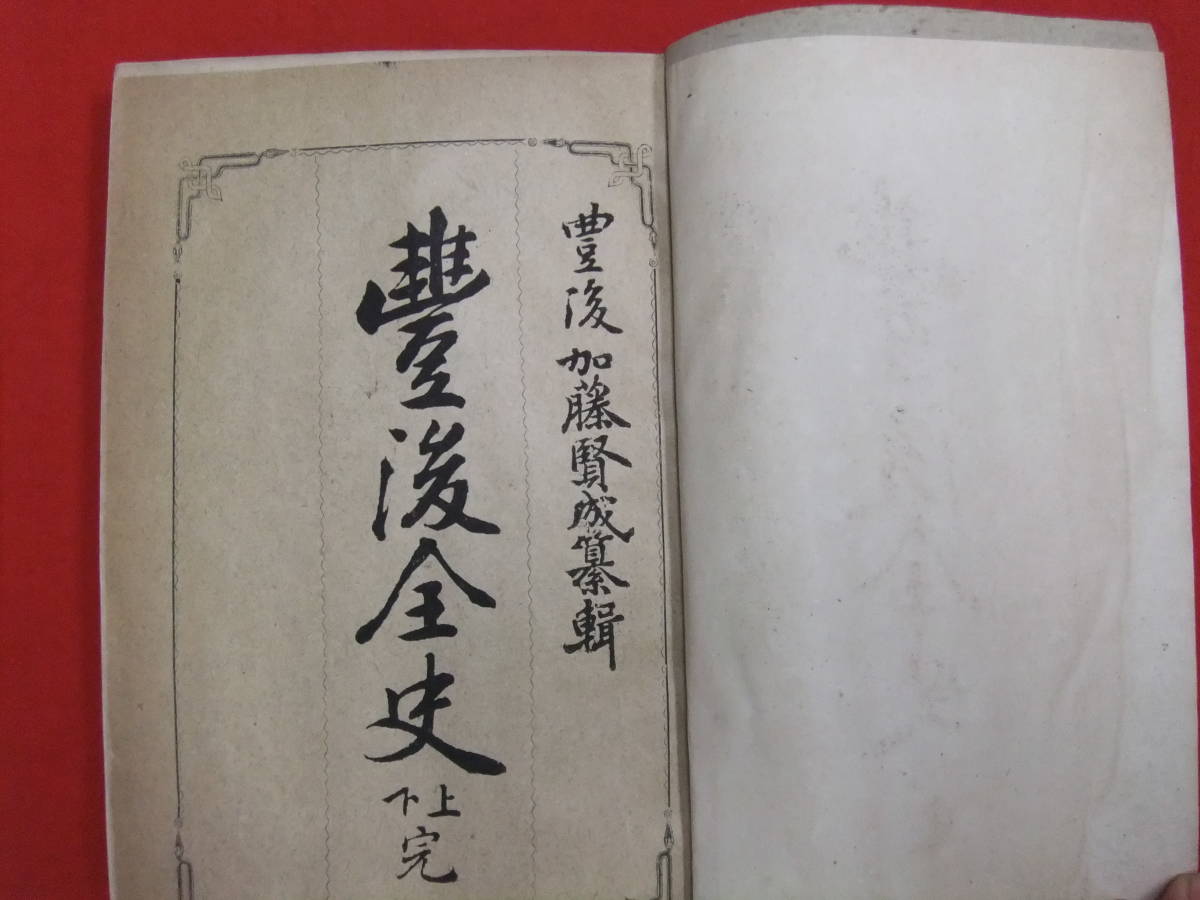 豊後加藤賢成纂輯
豐後全史
上下
完